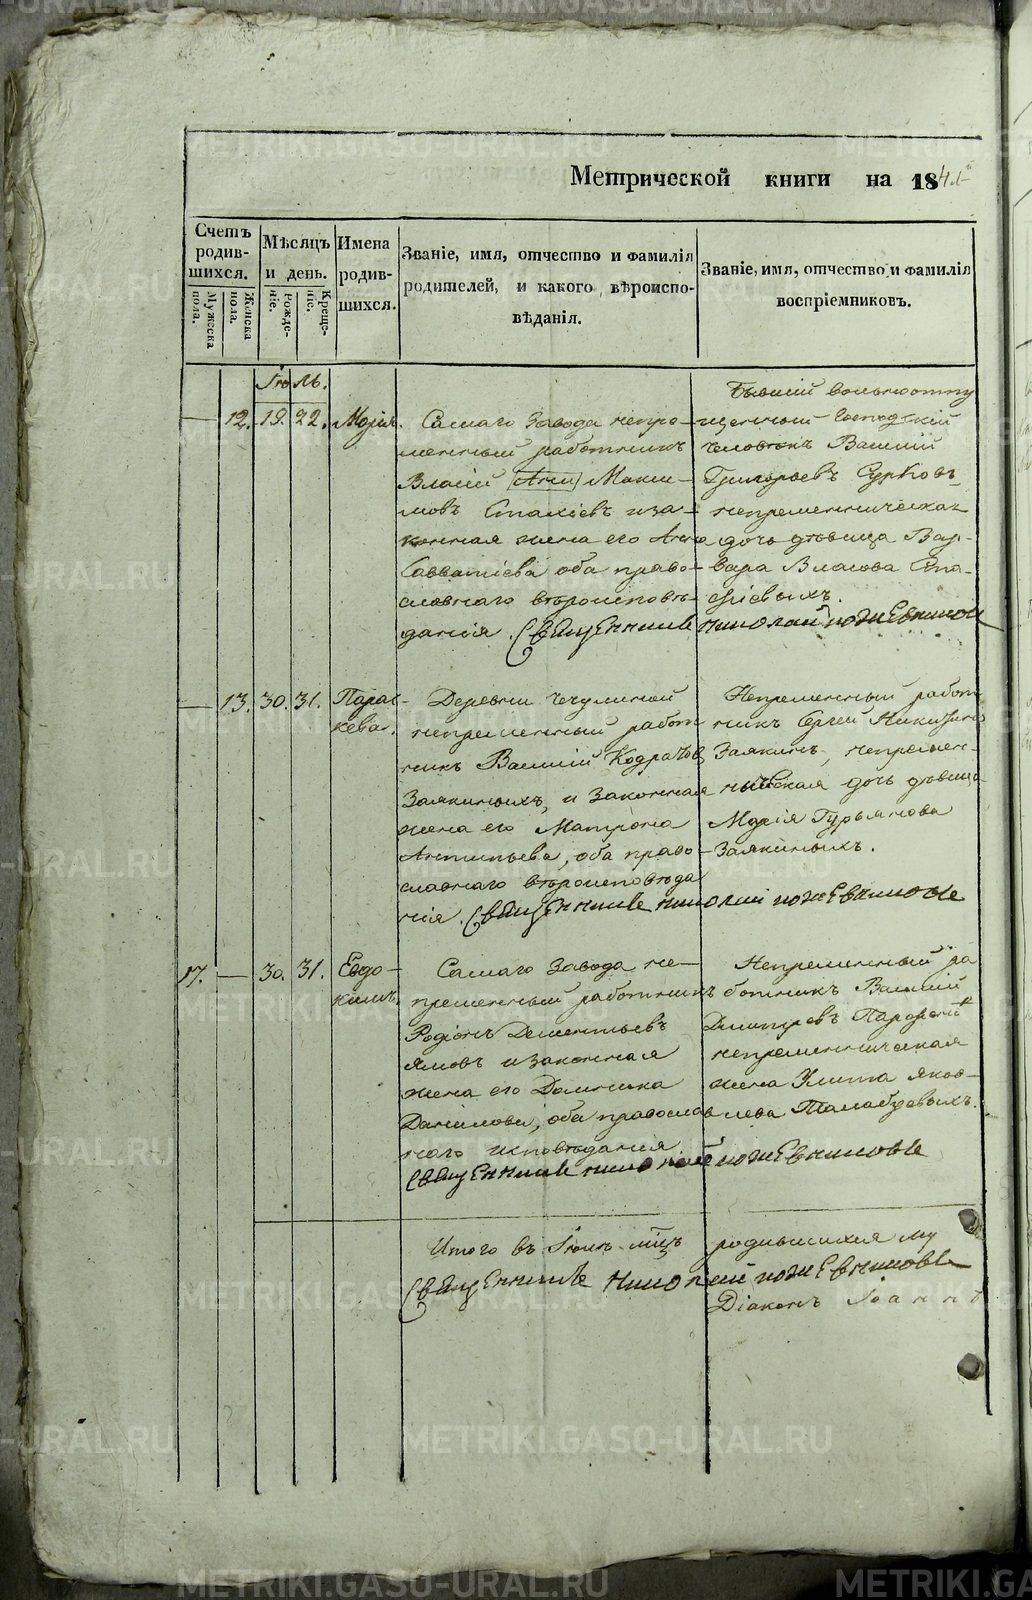 Метрической книги на 184
Счетъ родив-шихся.
Мужеска пола.
Женска пола.
Мѣсяцъ и день.
Рожде-ніе.
Креще-ніе.
Имена родив-шихся.
Званіе, имя, отчество и фамилія
родителей, и какого вѣроиспо-
вѣданія.
Званіе, имя, отчество и фамилія
воспріемниковъ.
Іюль.
12. 19. 22. Марія.
Самаго Завода непре-
менный работникъ
Власій Макси-
мовъ иза-
конная жена его Анна
Савватіева оба право-
славнаго вѣроисповѣ-
данія. Священникъ Николай Кожевниковъ
Бывшій вольноотпу
щенный Господскій
человѣкъ Василій
Григорьевъ Сурковъ
непременническая
дочь дѣвица Вар-
вара Власова
13. 30. 31. Парас-
кева.
Деревни
непременный работ
никъ Василій Кодратов
Заякиныхъ, и Законная
жена его Матрона
Антипьева, оба право-
славнаго вѣроисповѣда
нія. Священникъ Николай Кожевниковъ
Непременный работ
никъ Сергей Никитинъ
Заякинъ, непремен-
ническая дочь дѣвица
Марія Гурьянова
Заякиныхъ.
17. 30. 31. Евдо-
кимъ.
Самаго Завода не-
пременный работникъ
Родіонъ Дементьевъ
Ямовъ изаконная
жена его Домника
Данилова, оба православ
наго исповѣданія
Священникъ Николай Кожевниковъ
Непременный ра
ботникъ Василій
Дмитревъ
непременническая
жена Улита Яков-
лева Талабуевыхъ.
Итого въ Іюлѣ мцѣ родившихся му
Священникъ Николай Кожевниковъ
Діаконъ Іоаннъ
METRIKI.GASO-URAL.RU